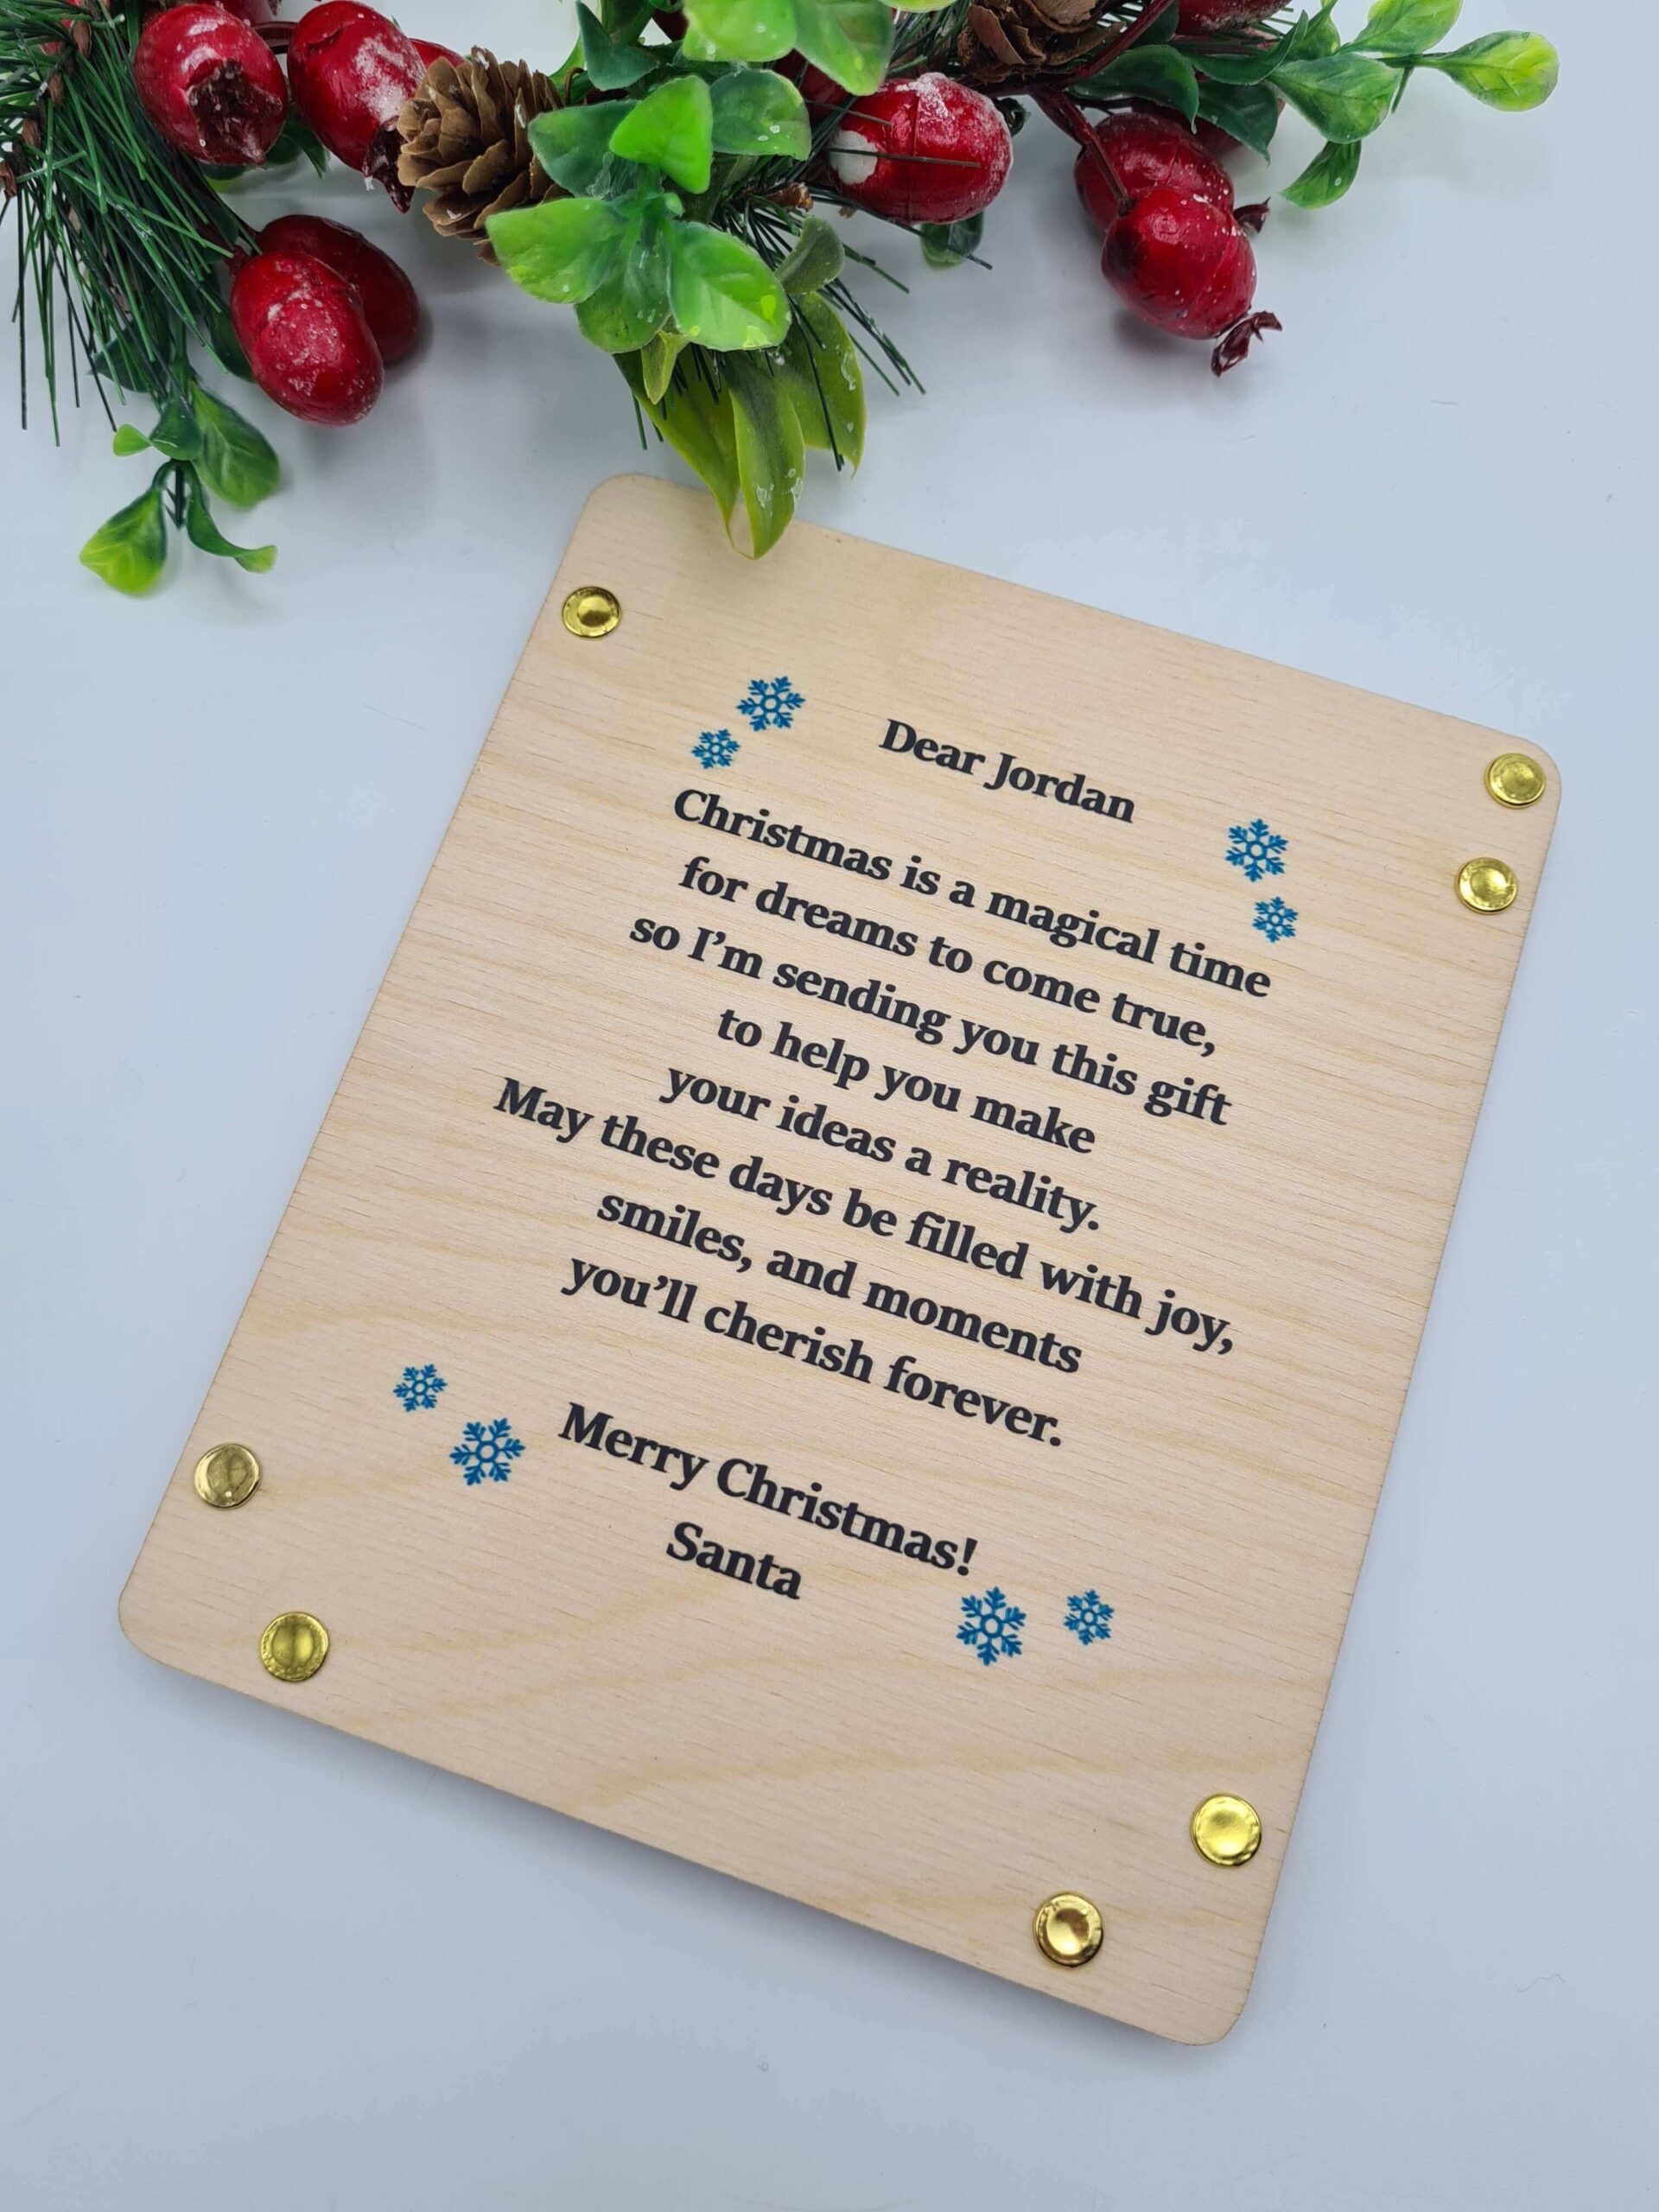 Dear Jordan
Christmas is a magical time
for dreams to come true,
so I’m sending you this gift
to help you make
your ideas a reality.
May these days be filled with joy,
smiles, and moments
you’ll cherish forever.
Merry Christmas!
Santa